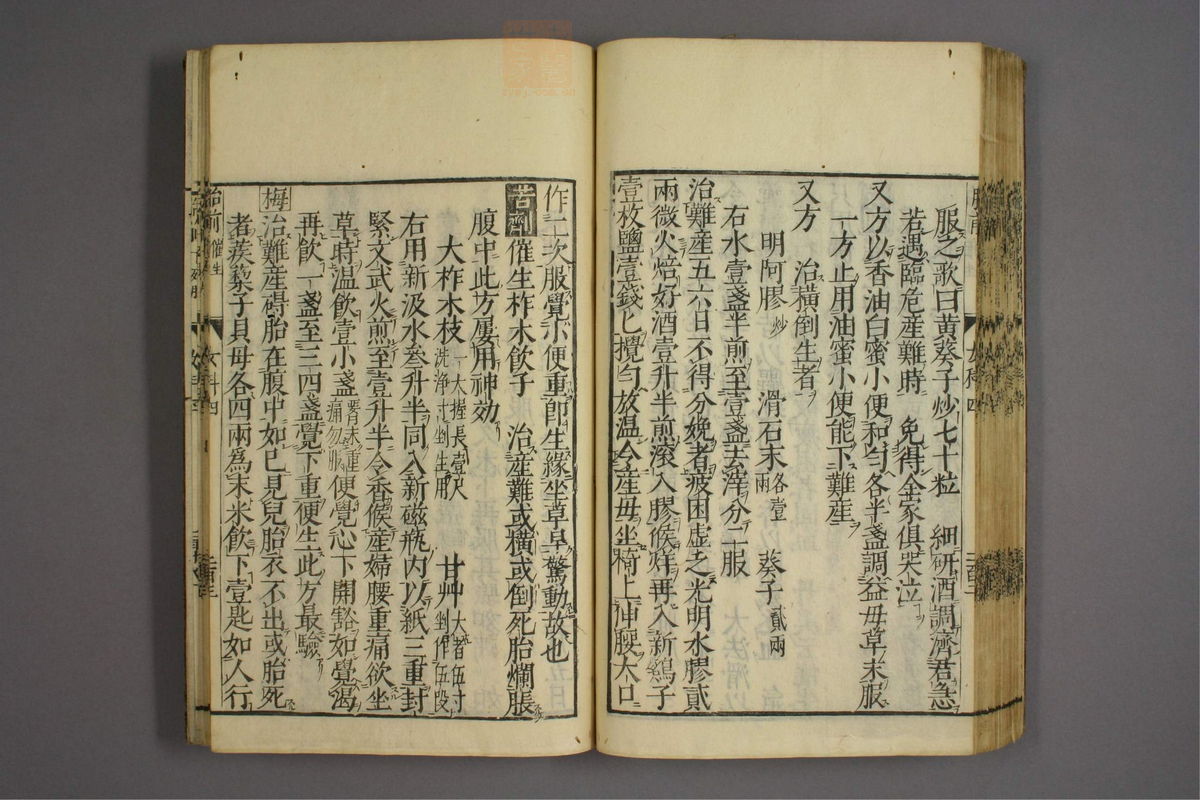 服之歌曰黄葵子炒七十粒 細研酒調濟君急
若遇臨危産難時 免得全家俱哭泣
又方以香油白蜜小便和匀各半盞調益母草末服
一方止用油蜜小便能下難産
又方 治横倒生者
明阿膠炒 滑石末各壹兩 葵子貳兩
右水壹盞半煎至壹盞去滓分二服
治難産五六日不得分娩者疲困虚乏光明水膠貳
兩微火焙好酒壹升半煎滚入膠候烊再入新鷄子
壹枚鹽壹錢匕攪匀放温令産母坐椅上伸腰大口
作二次服覺小便重即生緣坐草早驚動故也
若齋 催生柞木飲子 治産難或横或倒死胎爛脹
腹中此方屢用神効
大柞木枝一大握長壹尺洗浄寸剉生用 甘艸大者伍寸剉作伍段
右用新汲水叁升半同入新磁瓶内以紙三重封
緊文武火煎至壹升半令香候産婦腰重痛欲坐
草時温飲壹小盞腰未重痛勿服便覺心下開豁如覺渴
再飲一盞至三四盞覺下重便生此方最驗
梅 治難産碍胎在腹中如已見兒胎衣不出或胎死
者蒺藜子貝母各四兩為末米飲下壹匙如人行
胎前 催生
女科四